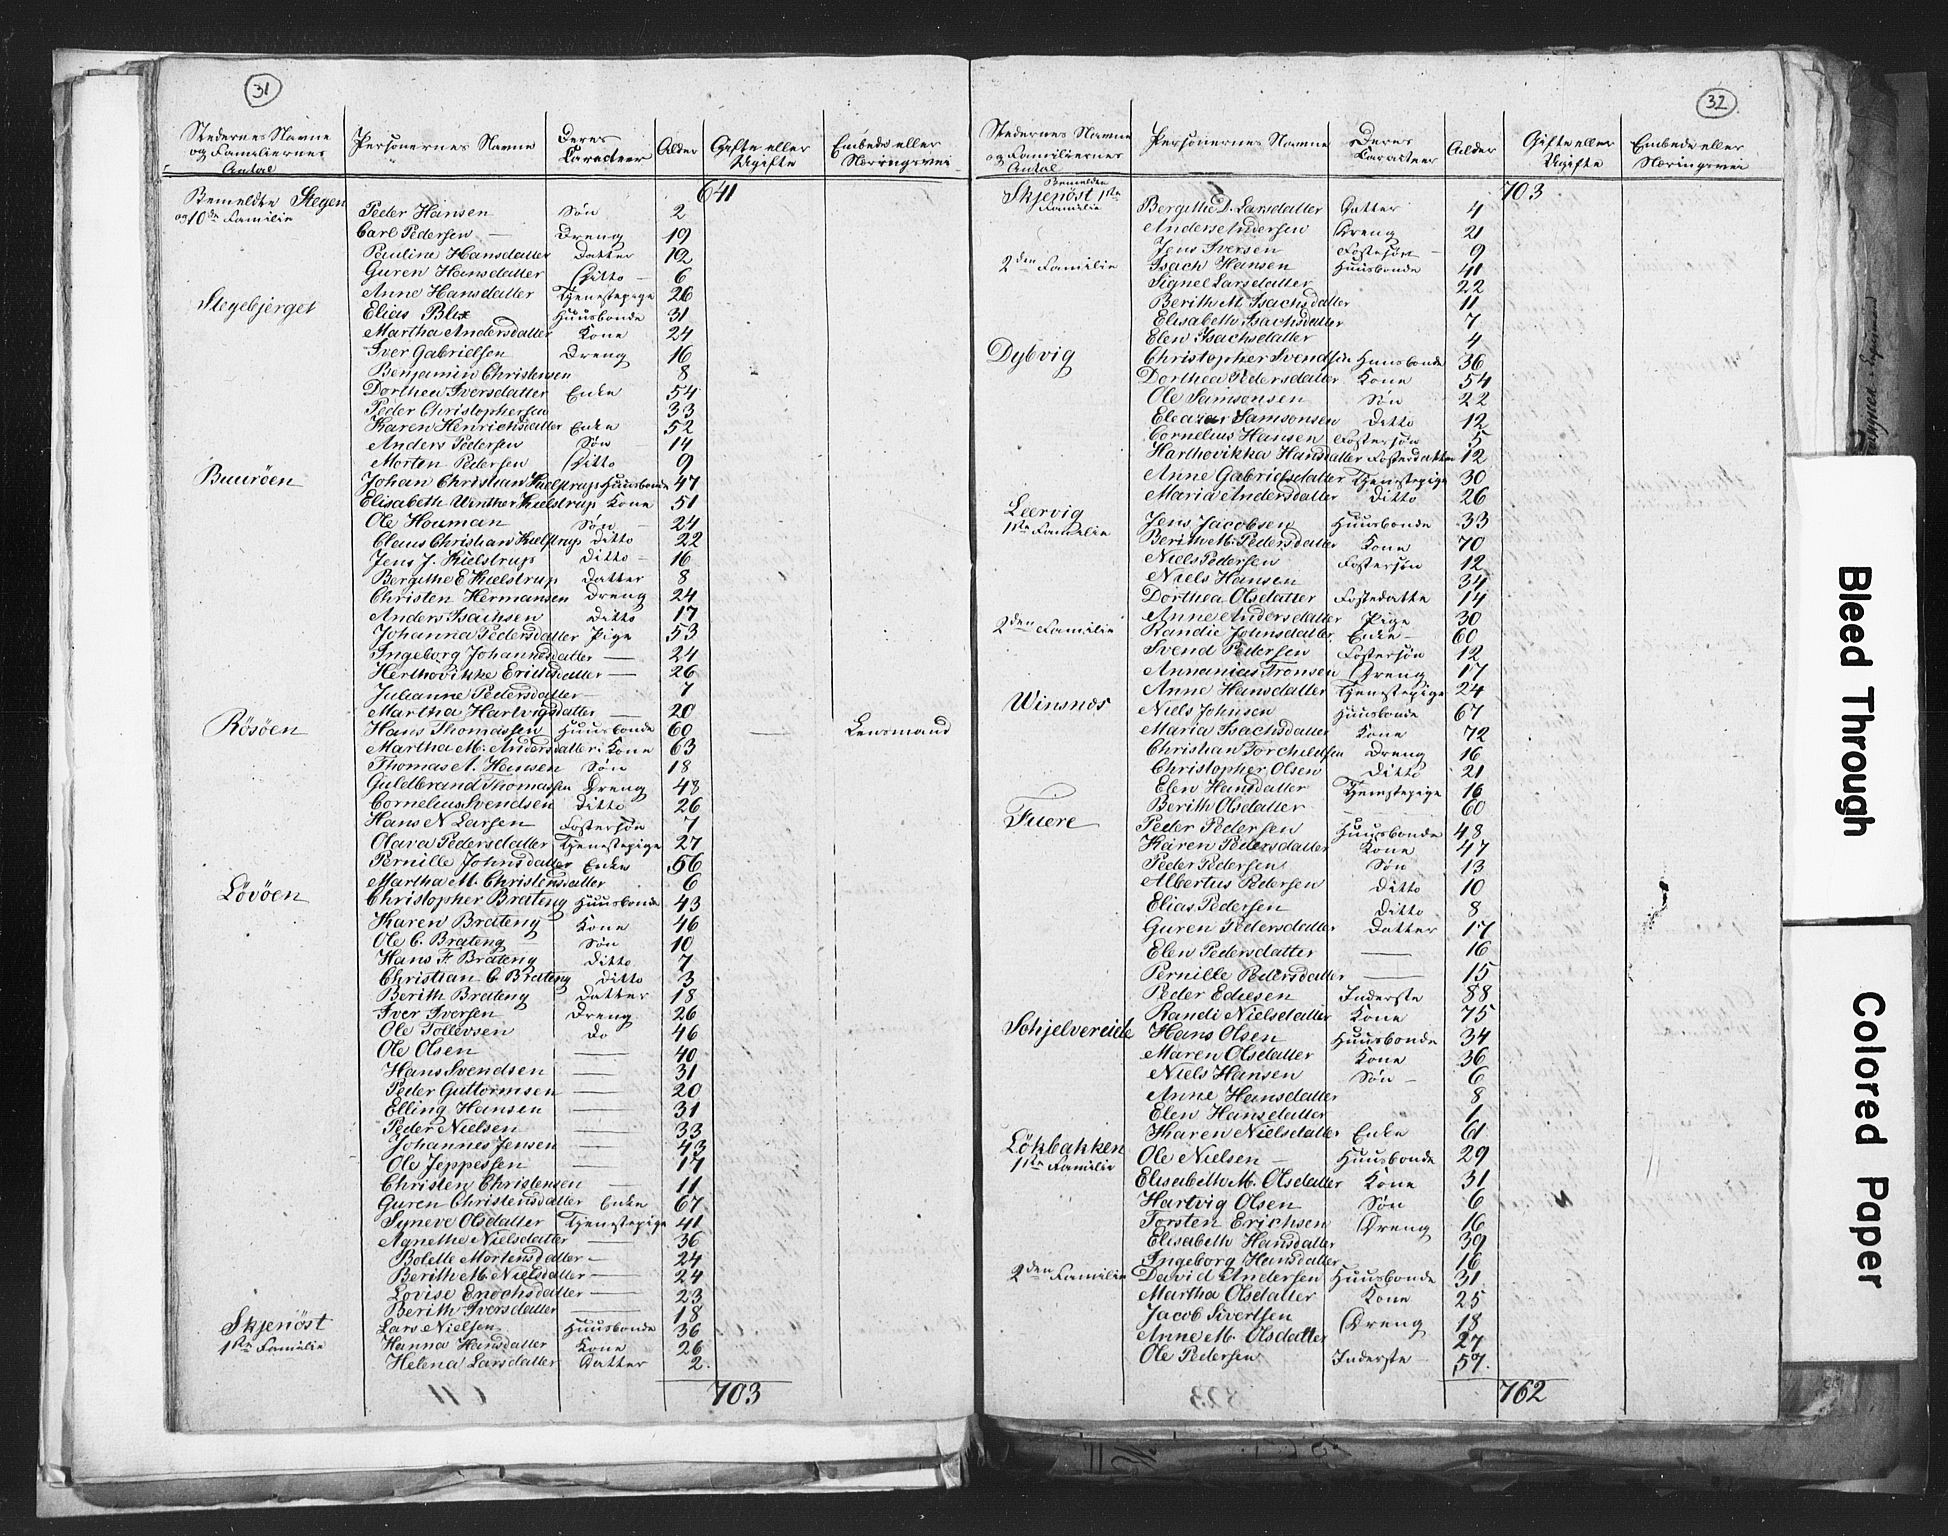 31
Stedernes Navne og Familiernes Antal | Personernes Navne | Deres Caracteer | Alder | Gifte eller Ugifte | Embede eller Næringsvei
641
Bemeldte Stegen og 10de Familie | Peder Hansen | Søn | 2
Carl Pedersen — | Dreng | 19
Pauline Hansdatter | Datter | 12
Guren Hansdatter | Ditto — | 6
Anne Hansdatter | Tjenestepige | 26
Stegebjerget | Elias Blix | Huusbonde | 31
Martha Andersdatter | Kone | 24
Iver Gabrielsen | Dreng | 16
Benjamin Christensen | 8
Dorthea Iversdatter | Enke | 54
Peder Christophersen | 33
Karen Henrichsdatter | Enke | 52
Anders Pedersen | Søn — | 14
Morten Pedersen | Ditto | 9
Buurøen | Johan Christian Kielstrup | Huusbonde | 47
Elisabeth Winther Kielstrup | Kone | 51
Ole Houman | Søn — | 24
Claus Christian Kielstrup | Ditto | 22
Jens J. Kielstrup | Ditto — | 16
Bergithe E Kielstrup | Datter | 8
Christen Hermansen | Dreng | 24
Anders Isachsen | Ditto | 17
Johanna Pedersdatter | Pige | 53
Ingeborg Johannesdatter | — | 24
Herthovikke Erichsdatter | — | 26
Julianne Pedersdatter | — | 7
Martha Hartvigsdatter | — | 20
Røsøen | Hans Thomassen | Huusbonde | 60 | — | Lensmand
Martha M. Andersdatter | Kone | 63
Thomas A. Hansen | Søn | 18
Guldbrand Thomassen | Dreng | 48
Cornelius Svendsen | Ditto | 26
Hans N Larsen | Fostersøn | 7
Olava Pedersdatter | Tjenestepige | 27
Pernille Johnsdatter | Enke | 56
Martha M. Christensdatter | 6
Løvøen | Christopher Brateng | Huusbonde | 43
Karen Brateng | Kone | 46
Ole C. Brateng | Søn | 10
Hans F Brateng | Ditto | 7
Christian C Brateng | Ditto | 3
Berith Brateng | Datter | 18
Iver Iversen | Dreng | 26
Ole Tollevsen | Do | 46
Ole Olsen | — | 40
Hans Svendsen | — | 31
Peder Guttormsen | — | 20
Elling Hansen | — | 31
Peder Nielsen | — | 33
Johannes Jensen | — | 43
Ole Jeppessen | — | 17
Christen Christensen | — | 11
Guren Christensdatter | Enke | 67
Syneve Olsdatter | Tjenestepige | 41
Agnethe Nielsdatter | — | 36
Bolette Mortensdatter | — | 24
Berith M. Nielsdatter | — | 24
Lovise Enochsdatter | — | 23
Berith Iversdatter | — | 18
Skjenøst 1ste Familie | Lars Nielsen | Huusbonde | 36
Hanna Hansdatter | Kone | 26
Helena Larsdatter | Datter | 2
703
32
Stedernes Navne og Familiernes Antal | Personernes Navne | Deres Caracteer | Alder | Gifte eller Ugifte | Embede eller Næringsvei
703
Bemeldte Skjenøst 1ste Familie | Bergithe D. Larsdatter | Datter | 4
Anders Andersen | Dreng | 21
Jens Iversen | Fostesøn — | 9
2den Familie | Isach Hansen | Huusbonde | 41
Signel Larsdatter | 22
Berith M. Isachsdatter | 11
Elisabeth Isachsdatter | 7
Elen Isachsdatter | 4
Dybvig | Christopher Svendsen | Huusbonde | 36
Dorthea Pedersdatter | Kone | 54
Ole Samsonsen | Søn | 22
Eleazar Samsonsen | Ditto | 12
Cornelius Hansen | Fostersøn | 5
Harthevikka Hansdatter | Fosterdatter | 12
Anne Gabrielsdatter | Tjenestepige | 30
Maria Andersdatter | Ditto | 26
Leervig 1ste Familie | Jens Jacobsen | Huusbonde | 33
Berith M. Pedersdatter | Kone | 70
Niels Pedersen | Fostersøn | 12
Niels Hansen | 34
Dorthea Olsdatter | Fostedatte | 14
Anne Andersdatter | Pige | 30
2den Familie | Randie Johnsdatter | Enke — | 60
Svend Pedersen | Fostersøn | 12
Annanias Tronsen | Dreng | 17
Anne Hansdatter | Tjenestepige | 24
Winsnæs | Niels Johnsen | Huusbonde | 67
Maria Isachsdatter | Kone | 72
Christian Torchildsen | Dreng | 16
Christopher Olsen | Ditto | 21
Elen Hansdatter | Tjenestepige | 16
Berith Olsdatter | 60
Fuere | Peder Pedersen | Huusbonde | 48
Karen Pedersdatter | Kone | 47
Peder Pedersen | Søn | 13
Albertus Pedersen | Ditto | 10
Elias Pedersen | Ditto | 8
Guren Pedersdatter | Datter | 17
Elen Pedersdatter | — | 16
Pernille Pedersdatter | — | 15
Peder Ediesen | Inderste | 88
Randi Nielsdatter | Kone | 75
Schjelvereide | Hans Olsen | Huusbonde | 34
Maren Olsdatter | Kone | 36
Niels Hansen | Søn — | 6
Anne Hansdatter | 8
Elen Hansdatter | 1
Karen Nielsdatter | Enke | 61
Løkbakken 1ste Familie | Ole Nielsen — | Huusbonde | 29
Elisabeth M. Olsdatter | Kone | 31
Hartvig Olsen | Søn | 6
Torsten Erichsen | Dreng | 16
Elisabeth Hansdatter | 39
Ingeborg Hansdatter | 16
2den Familie | David Andersen | Huusbonde | 31
Martha Olsdatter | Kone | 25
Jacob Sivertsen | Dreng | 18
Anne M. Olsdatter | 27
Ole Pedersen | Inderste | 57
762
Bleed Through
Colored Paper